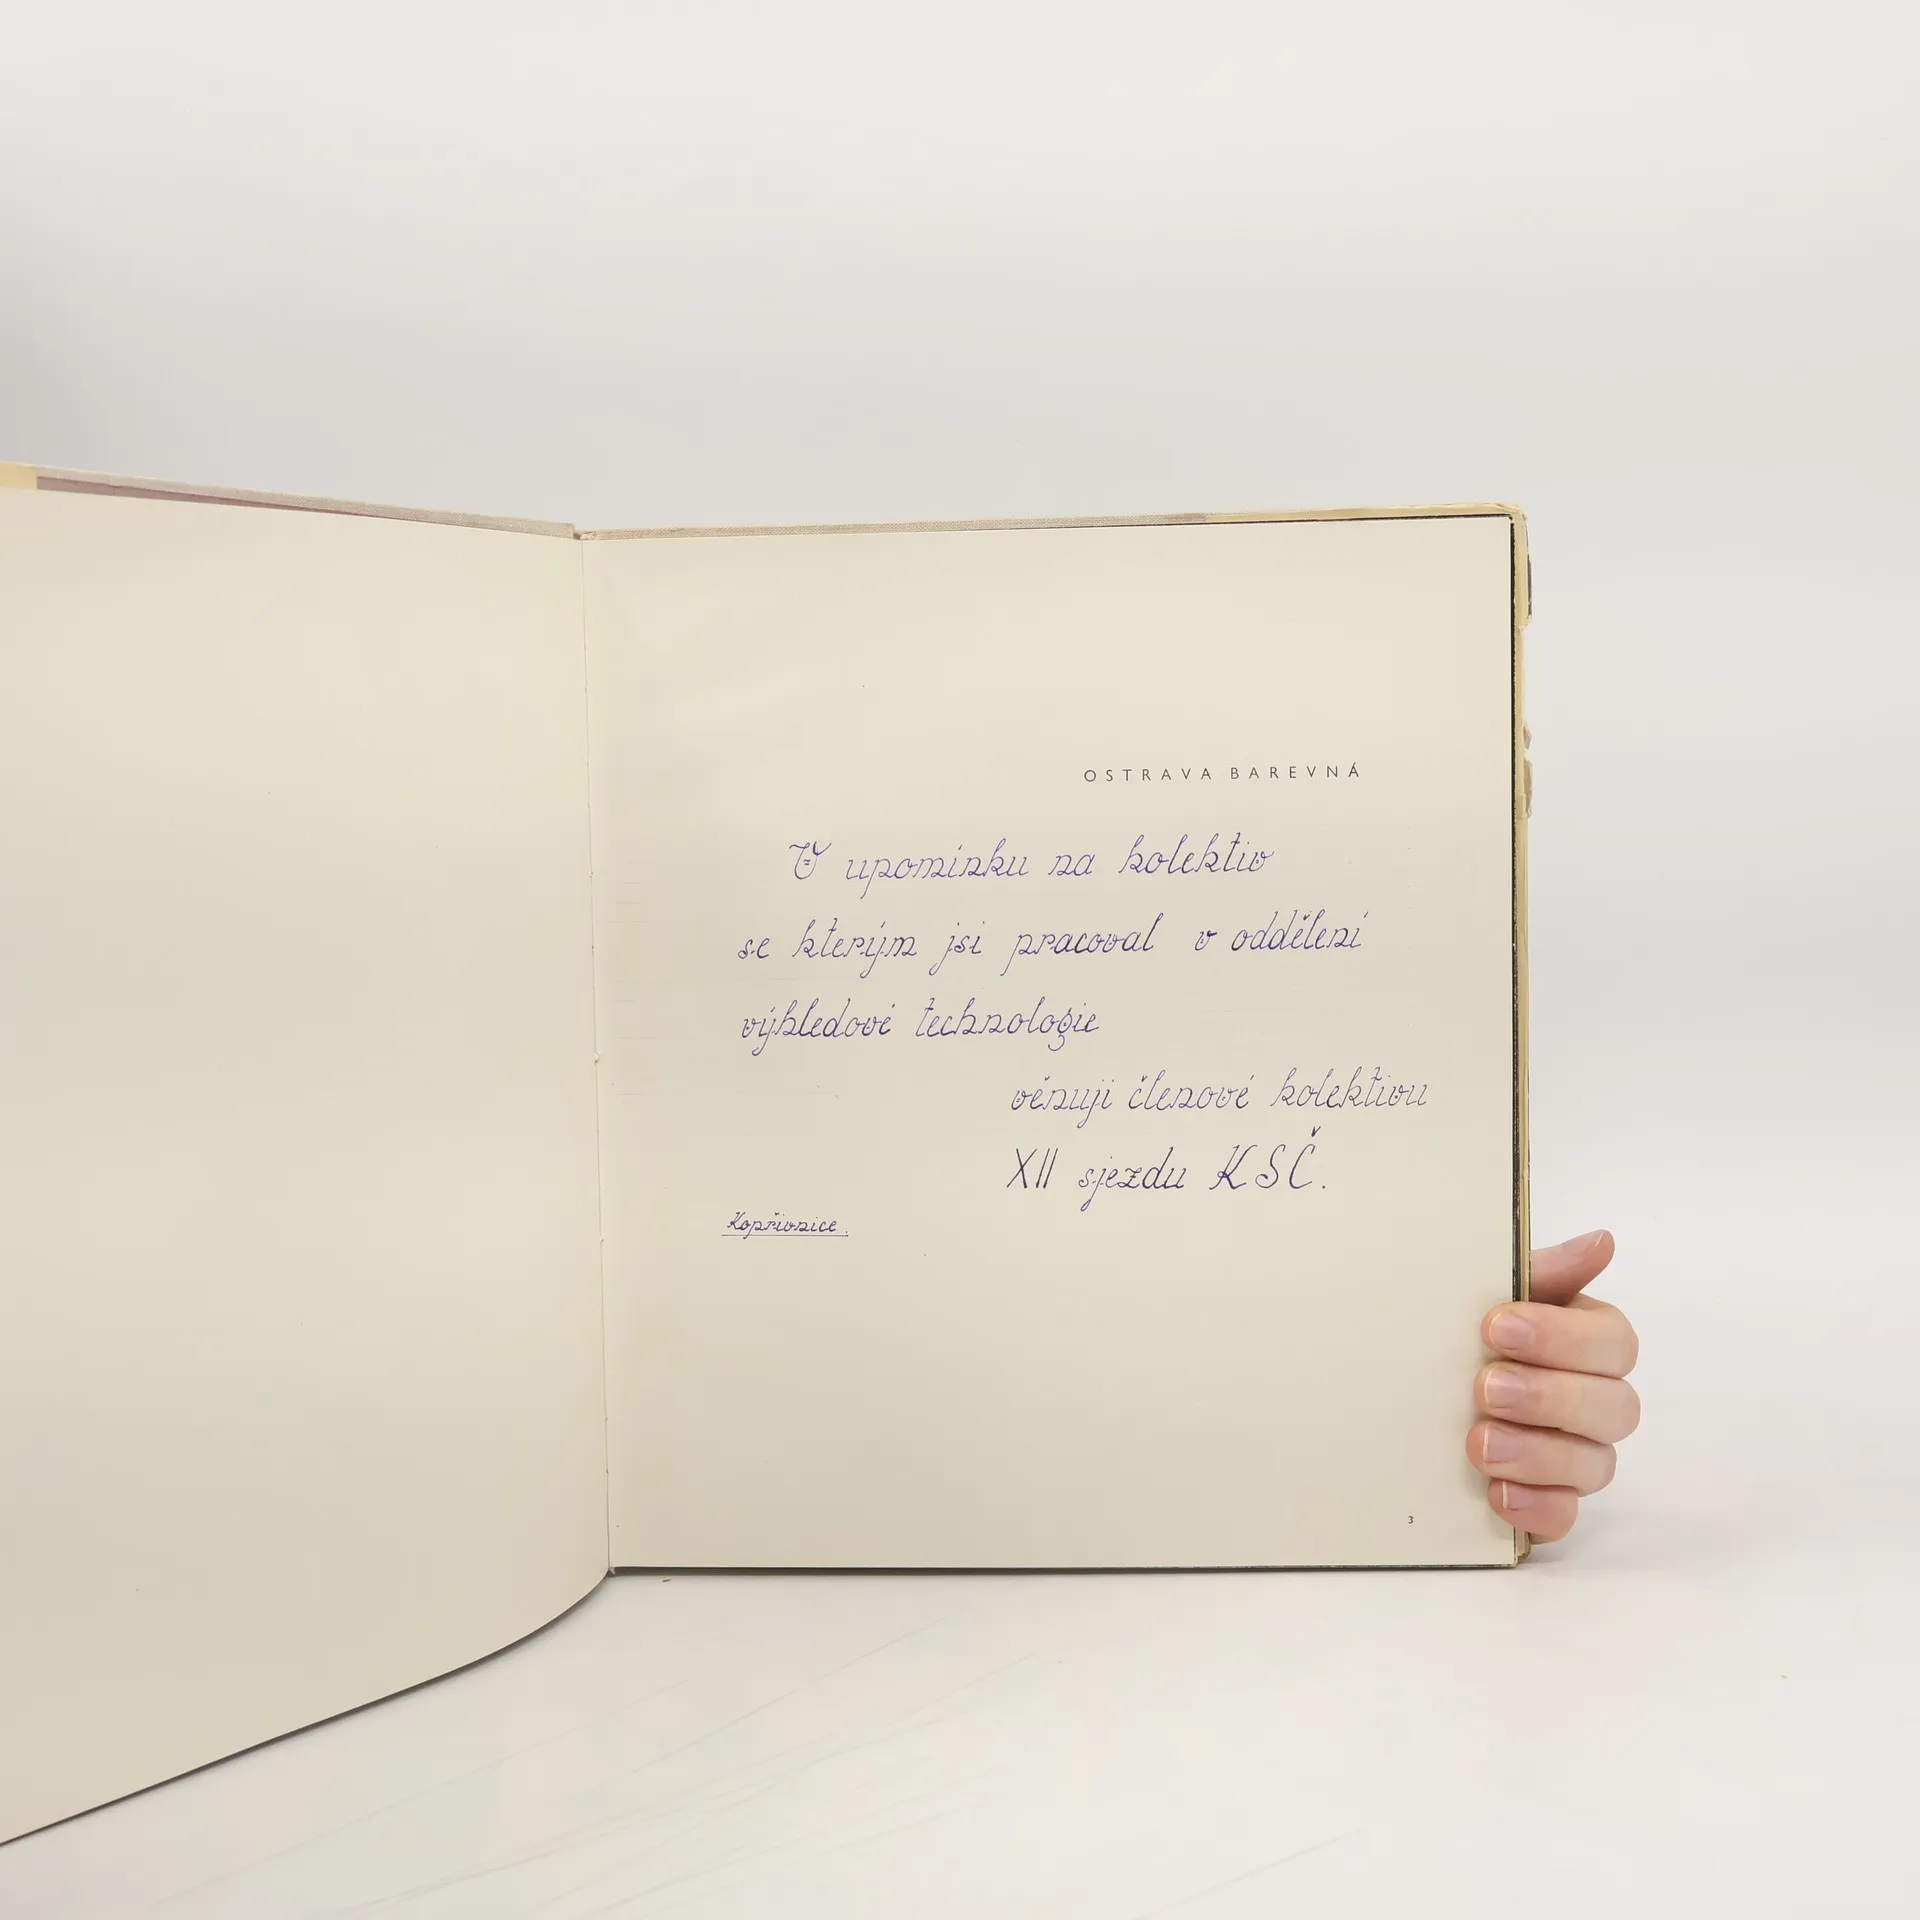 OSTRAVA BAREVNÁ
V upomínku na kolektiv
se kterým jsi pracoval v oddělení
výhledové technologie
věnuji členové kolektivu
XII sjezdu KSČ.
Kopřivnice.
3